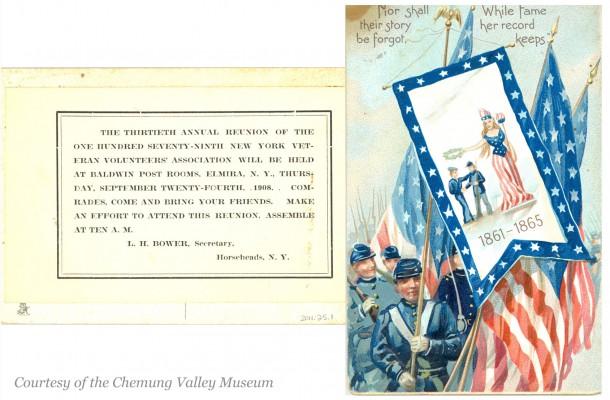 THE THIRTIETH ANNUAL REUNION OF THE
ONE HUNDRED SEVENTY-NINTH NEW YORK VET-
ERAN VOLUNTEERS' ASSOCIATION WILL BE HELD
AT BALDWIN POST ROOMS, ELMIRA, N. Y., THURS-
DAY, SEPTEMBER TWENTY-FOURTH, .1908. . COM-
RADES, COME AND BRING YOUR FRIENDS. MAKE
AN EFFORT TO ATTEND THIS REUNION. ASSEMBLE
AT TEN A. M.
L. H. BOWER, Secretary,
Horseheads, N. Y.
2011.25.1
Courtesy of the Chemung Valley Museum
Nor shall
their story
be forgot,
While fame
her record
keeps
1861-1865